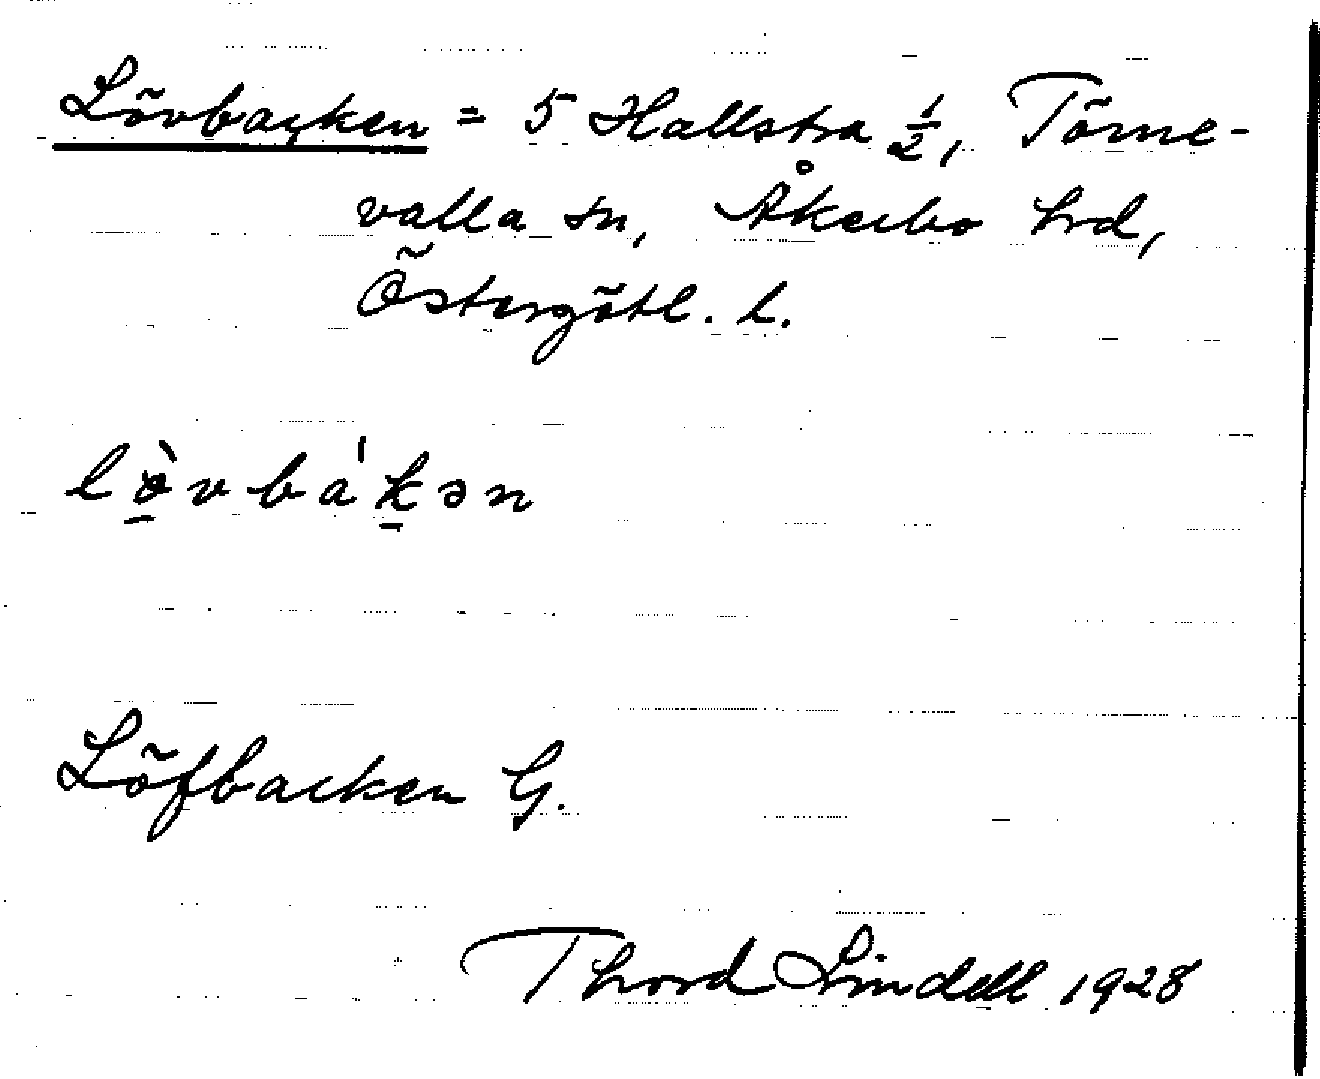 Lövbacken = 5 Hallstra ½, Törne-
valla sn, Åkerbo hrd,
Östergötl. l.
lö̀vbák̠ən
Löfbacken G.
Thord Lindell 1928